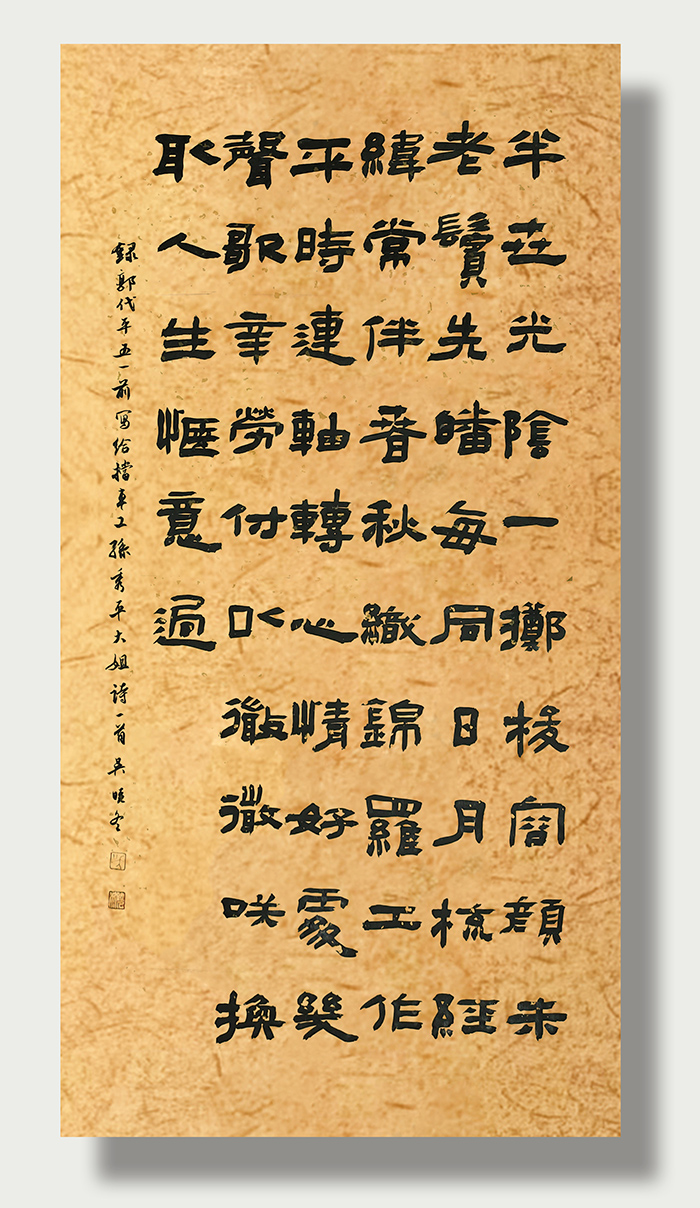 半世光陰一擲梭容顏未
老鬢先皤每同日月梳經
緯常伴春秋織錦羅工作
平時連軸轉心情好處幾
聲歌辛勞付以微微咲換
取人生愜意過
録郭代平五一前寫給擋車工孫秀平大姐詩一首吴